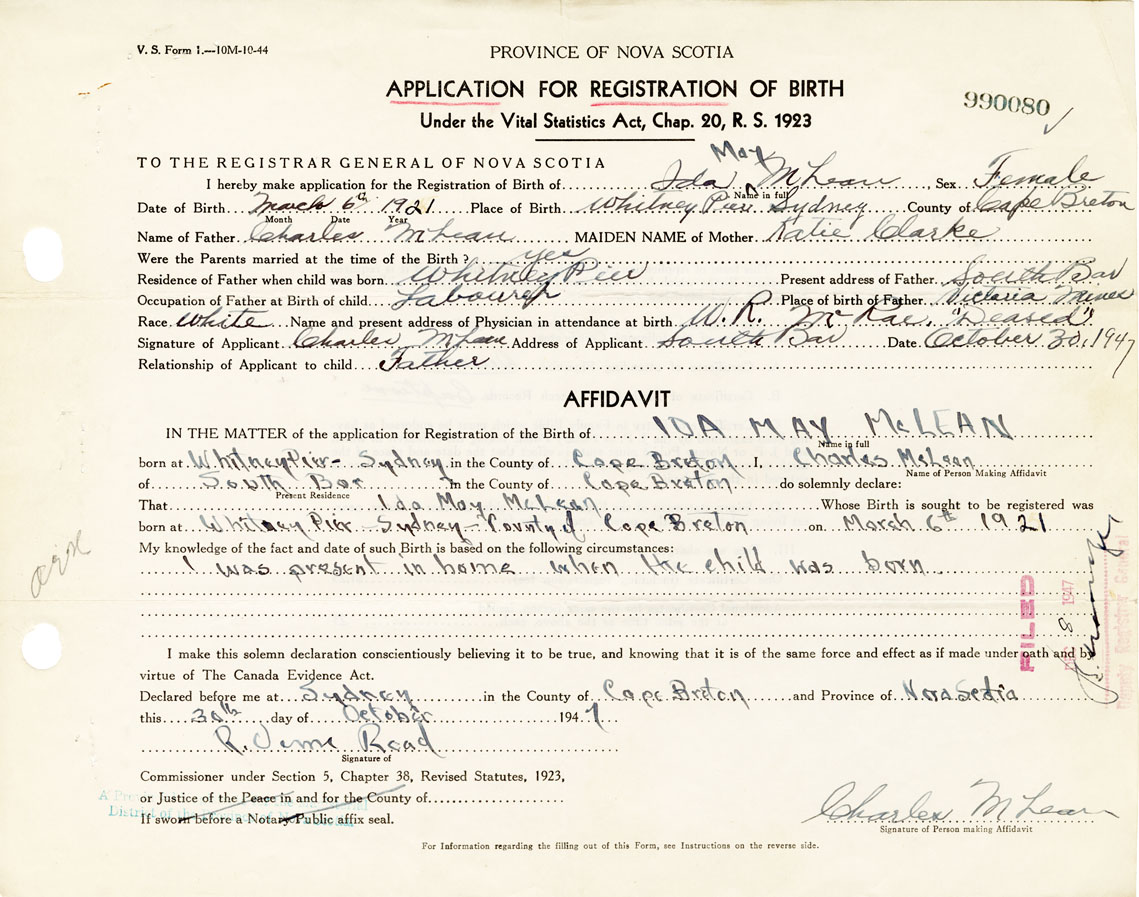 V. S. Form 1.—10M-10-44
PROVINCE OF NOVA SCOTIA
APPLICATION FOR REGISTRATION OF BIRTH
990080
Under the Vital Statistics Act, Chap. 20, R. S. 1923
TO THE REGISTRAR GENERAL OF NOVA SCOTIA
May
I hereby make application for the Registration of Birth of Ida McLean, Sex Female
Name in full
Date of Birth March 6th 1921 Place of Birth Whitney Pier Sydney County of Cape Breton
Month Date Year
Name of Father Charles McLean MAIDEN NAME of Mother Katie Clarke
Were the Parents married at the time of the Birth? yes
Residence of Father when child was born Whitney Pier Present address of Father South Bar
Occupation of Father at Birth of child Labourer Place of birth of Father Victoria Mines
Race White Name and present address of Physician in attendance at birth W. R. McRae, "Deased"
Signature of Applicant Charles McLean Address of Applicant South Bar Date October 30, 1947
Relationship of Applicant to child Father
AFFIDAVIT
IN THE MATTER of the application for Registration of the Birth of IDA MAY McLEAN
Name in full
born at Whitney Pier - Sydney in the County of Cape Breton I, Charles McLean
Name of Person Making Affidavit
of South Bar In the County of Cape Breton do solemnly declare:
Present Residence
That Ida May McLean Whose Birth is sought to be registered was
born at Whitney Pier - Sydney - County of Cape Breton on March 6th 1921
My knowledge of the fact and date of such Birth is based on the following circumstances:
I was present in home when the child was born
FILED
8 1947
Deputy Registrar General
I make this solemn declaration conscientiously believing it to be true, and knowing that it is of the same force and effect as if made under oath and by
virtue of The Canada Evidence Act.
Declared before me at Sydney in the County of Cape Breton and Province of Nova Scotia
this 30th day of October 1947
R. Road
Signature of
Commissioner under Section 5, Chapter 38, Revised Statutes, 1923,
or Justice of the Peace in and for the County of
If sworn before a Notary Public affix seal.
Charles McLean
Signature of Person making Affidavit
For Information regarding the filling out of this Form, see Instructions on the reverse side.